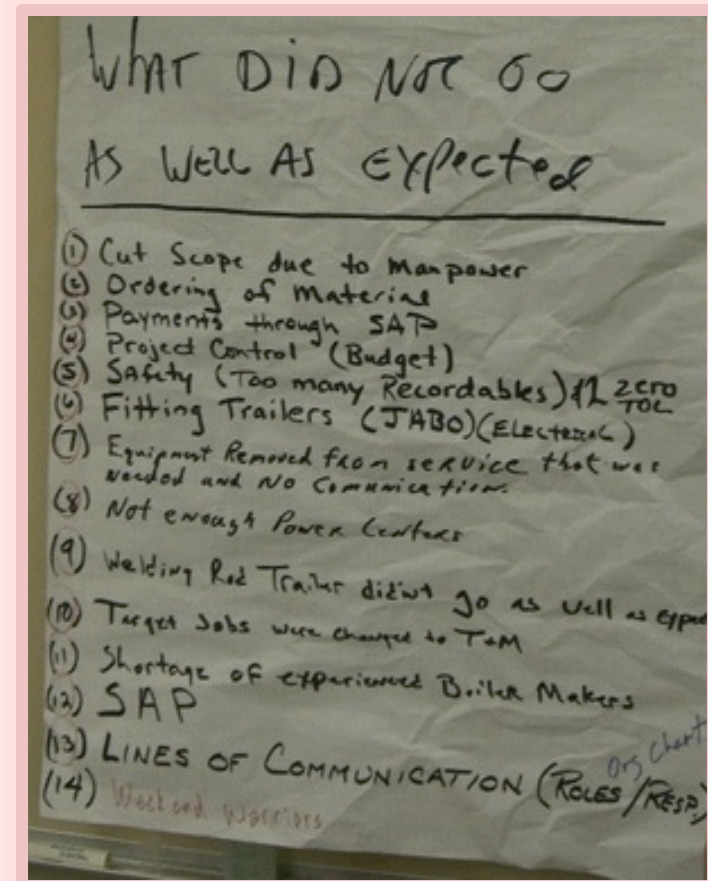 WHAT DID NOT GO
AS WELL AS EXPected
(1) Cut Scope due to Manpower
(2) Ordering of Material
(3) Payments through SAP
(4) Project Control (Budget)
(5) Safety (Too many Recordables) zero
TOL
(6) Fitting Trailers (JABO)(ELECTRICAL)
(7) Equipment Removed from service that was
needed and No Comunication.
(8) Not enough Power Centers
(9) Welding Rod Trailer didn't go as well as expe
(10) Target Jobs were changed to T+M
(11) Shortage of experienced Boiler Makers
(12) SAP
Org Chart
(13) LINES OF COMMUNICATION (ROLES/RESP.)
(14) Weekend Warriors